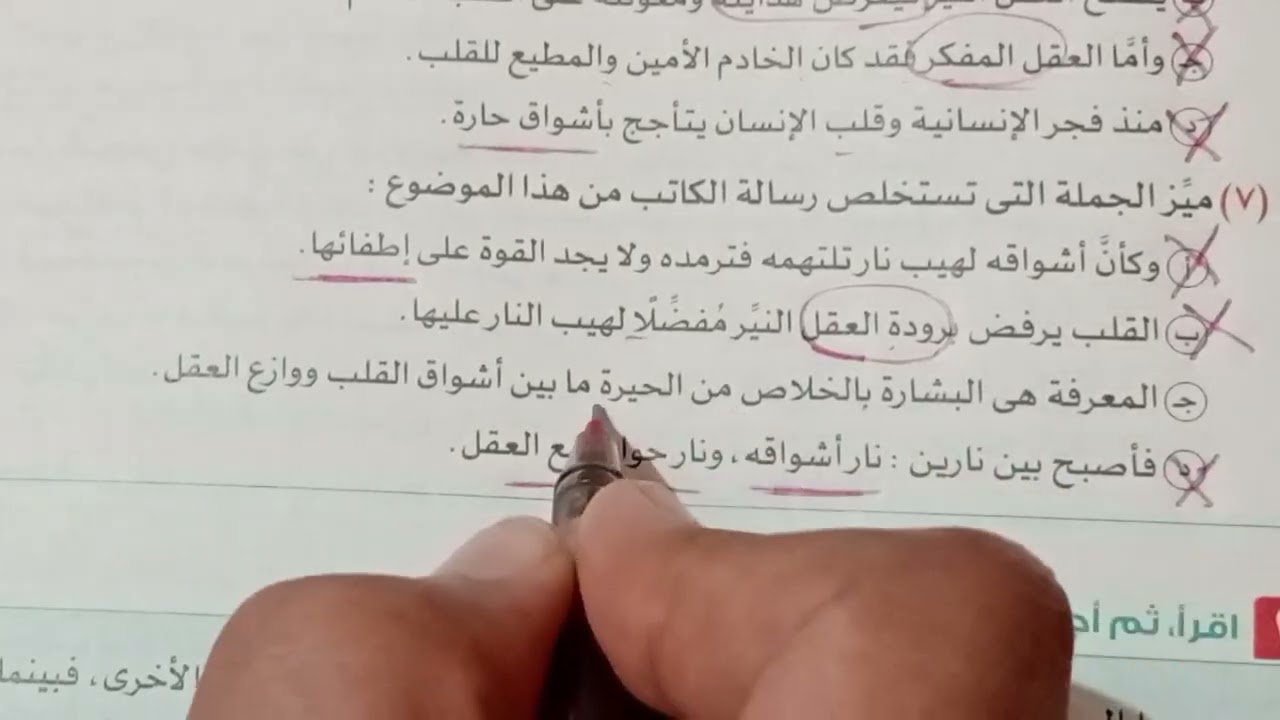 جـ وأمَّا العقل المفكر فقد كان الخادم الأمين والمطيع للقلب .
د منذ فجر الإنسانية وقلب الإنسان يتأجج بأشواق حارة .
(٧) ميِّز الجملة التى تستخلص رسالة الكاتب من هذا الموضوع :
أ وكأنَّ أشواقه لهيب نار تلتهمه فترمده ولا يجد القوة على إطفائها.
ب القلب يرفض برودة العقل النيَّر مُفضِّلًا لهيب النار عليها.
جـ المعرفة هى البشارة بالخلاص من الحيرة ما بين أشواق القلب ووازع العقل.
د فأصبح بين نارين : نار أشواقه ، ونار العقل .
اقرأ، ثم
الأخرى ، فبينما